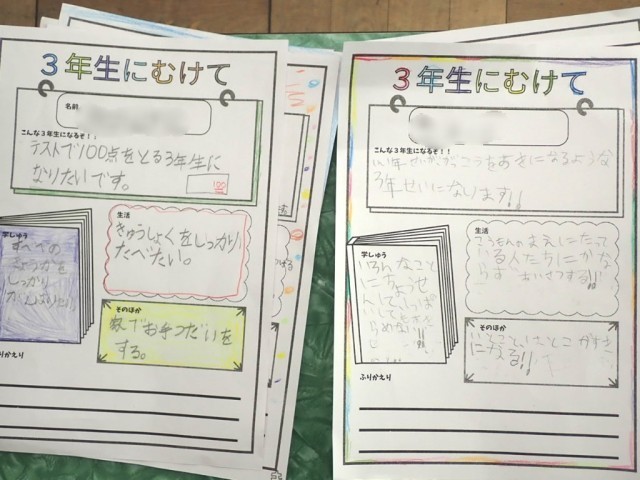 3年生にむけて
名前
こんな3年生になるぞ！！
テストで100点をとる3年生に
なりたいです。
100
学しゅう
すべての
しっかり
がんばりたい
生活
きゅうしょくをしっかり
たべたい。
そのほか
家でお手つだいを
する。
ふりかえり
3年生にむけて
こんな3年生になるぞ！！
1、2年せいががっこうをすきになるような
3年せいになります!!
学しゅう
いろんなこと
にちょうせ
んしていっぱ
生活
こうもんのまえにたって
いる人たちにかな
らずあいさつする!!
そのほか
になる!!
ふりかえり